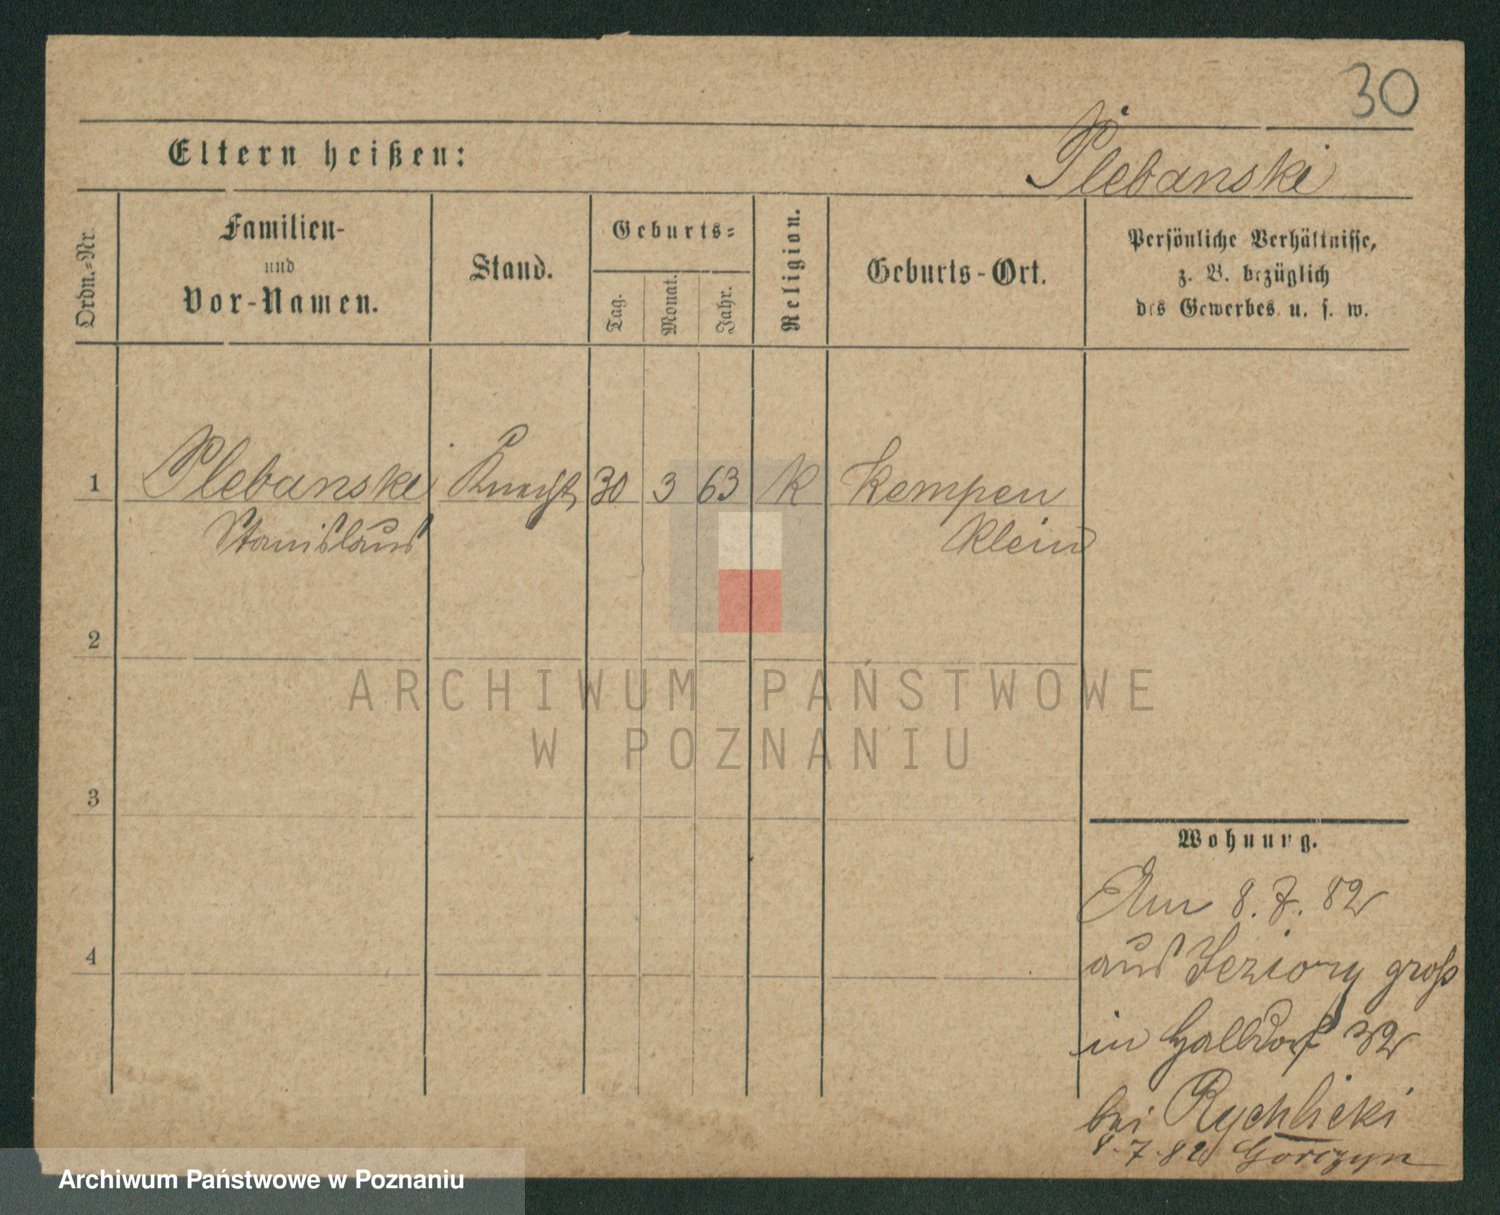 30
Eltern heißen:
Plebanski
Ordn.-Nr.
Familien-
und
Vor-Namen.
Stand.
Geburts-
Tag.
Monat.
Jahr.
Religion.
Geburts-Ort.
Persönliche Verhältnisse,
z. B. bezüglich
des Gewerbes u. s. w.
1 Plebanski Knecht 30 3 63 K Kempen
Stanislaus Klein
2
ARCHIWUM PAŃSTWOWE
W POZNANIU
3
Wohnung.
Am 8. 7. 82
4
aus Jeziory groß
in 32
bei Rychlicki
8.7.82 Gorczyn
Archiwum Państwowe w Poznaniu